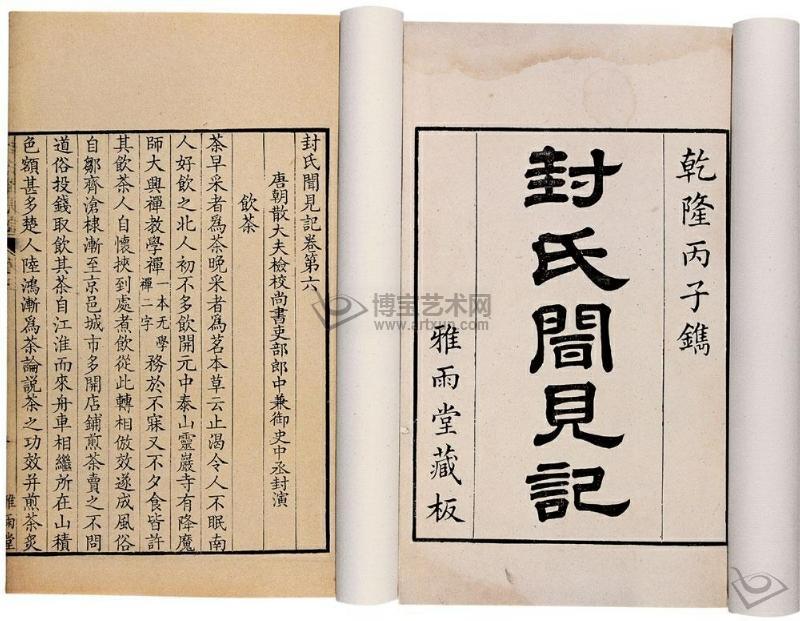 乾隆丙子鐫
封氏聞見記
雅雨堂藏板
封氏聞見記卷第六
唐朝散大夫檢校尚書吏部郎中兼御史中丞封演
飲茶
茶早采者爲茶晚采者爲茗本草云止渴令人不眠南
人好飲之北人初不多飲開元中泰山靈巖寺有降魔
師大興禪教學禪一本无學禪二字務於不寐又不夕食皆許
其飲茶人自懷挾到處煮飲從此轉相倣效遂成風俗
自鄒齊滄棣漸至京邑城市多開店鋪煎茶賣之不問
道俗投錢取飲其茶自江淮而來舟車相繼所在山積
色額甚多楚人陸鴻漸爲茶論説茶之功效并煎茶炙
雅雨堂
博宝艺术网
www.artbun.com